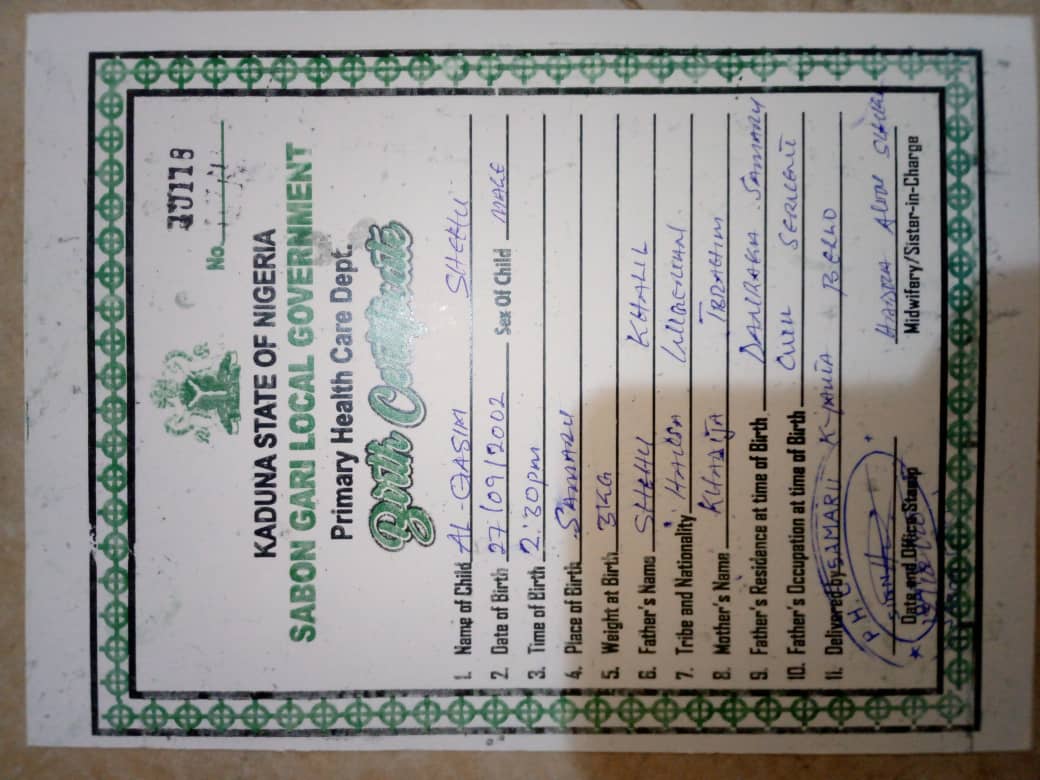 No. 
KADUNA STATE OF NIGERIA
SABON GARI LOCAL GOVERNMENT
Primary Health Care Dept.
Birth Certificate
1. Name of Child AL-GASIM SHEHU
2. Date of Birth 27/09/2002 Sex Of Child MALE
3. Time of Birth 2:30pm
4. Place of Birth SAMARU
5. Weight at Birth 3KG
6. Father's Name SHEHU KHALIL
7. Tribe and Nationality HAUSA
8. Mother's Name KHADIJA IBRAHIM
9. Father's Residence at time of Birth SAMARU
10. Father's Occupation at time of Birth CIVIL SERVENT
11. Delivered by BELLO
P.H.C SAMARU
SIGN
Date and Office Stamp
Midwifery/Sister-in-Charge